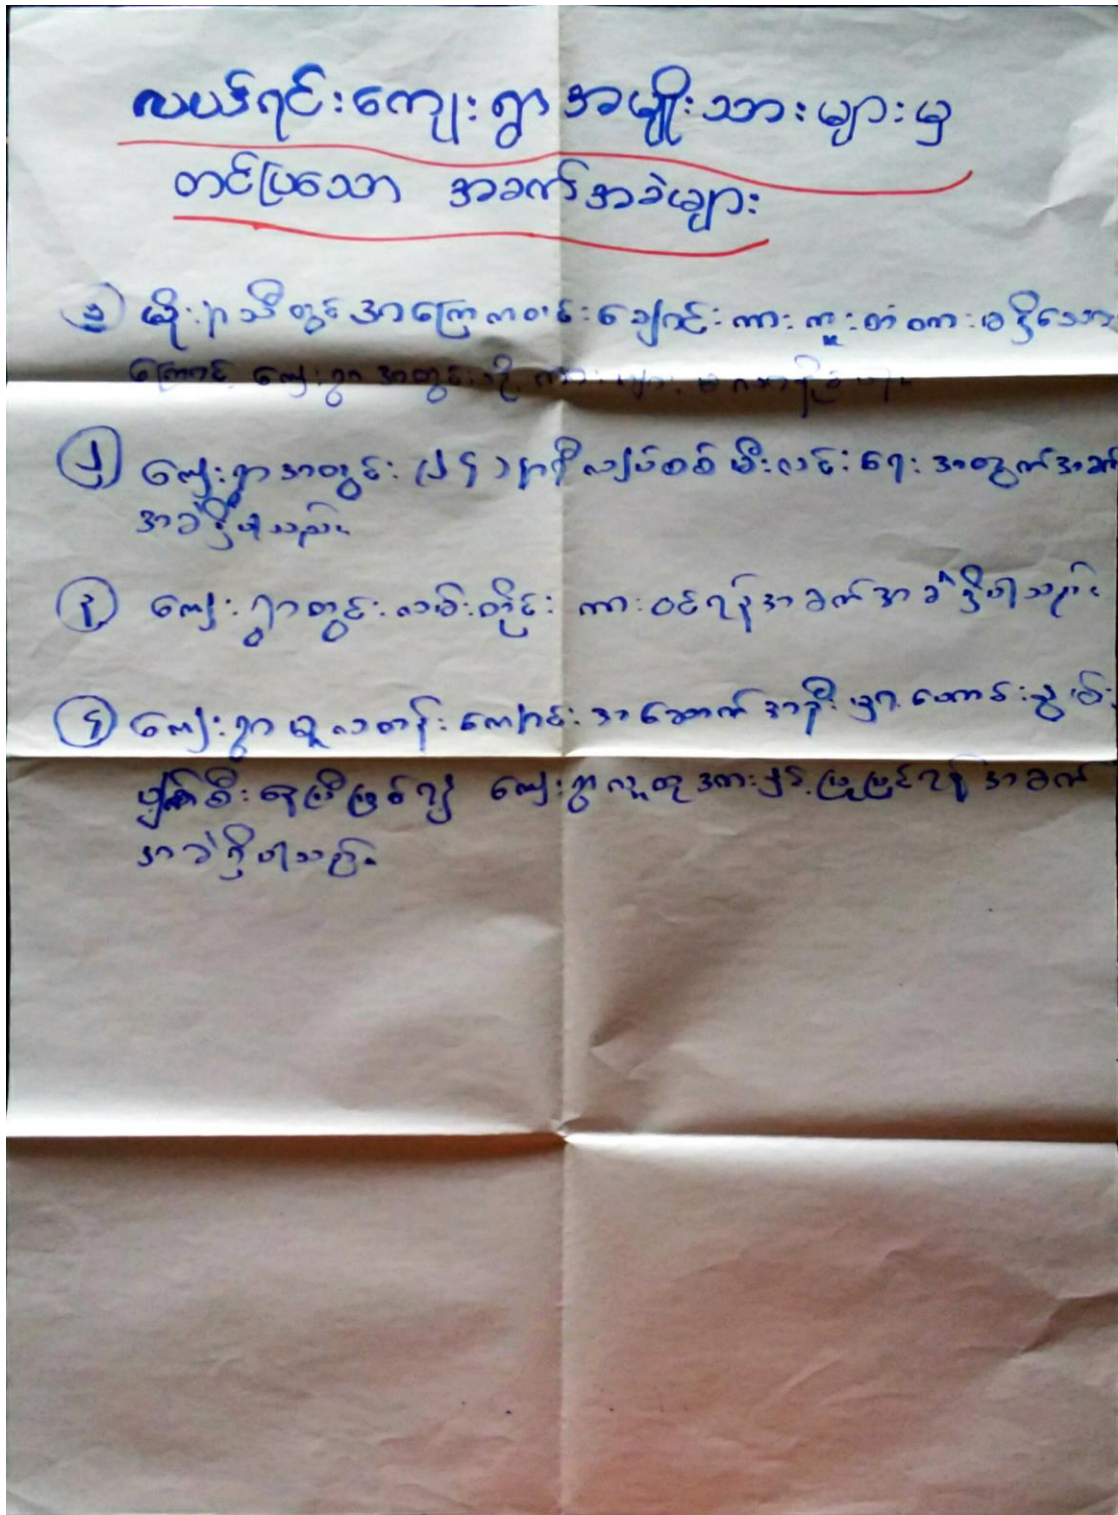 လယ်ရင်းကျေးရွာအမျိုးသားများမှ
တင်ပြသော အခက်အခဲများ
၁ မိုးရာသီတွင်အကြော ချောင်းကားကူးတံတားမရှိသော
ကြောင့် ကျေးရွာအတွင်းသို့ ကားများ မလာနိုင်ပါ။
၂ ကျေးရွာအတွင်း (၂၄)နာရီလျှပ်စစ်မီးလင်းရေးအတွက်အခက်
အခဲရှိပါသည်။
၃ ကျေးရွာတွင်းလမ်းတိုင်း ကားဝင်ရန်အခက်အခဲရှိပါသည်။
၄ ကျေးရွာမူလတန်းကျောင်းအဆောက်အဦးမှာ ဟောင်းနွမ်း
ပျက်စီးနေပြီဖြစ်၍ ကျေးရွာလူထုအားဖြင့်ပြုပြင်ရန်အခက်
အခဲရှိပါသည်။